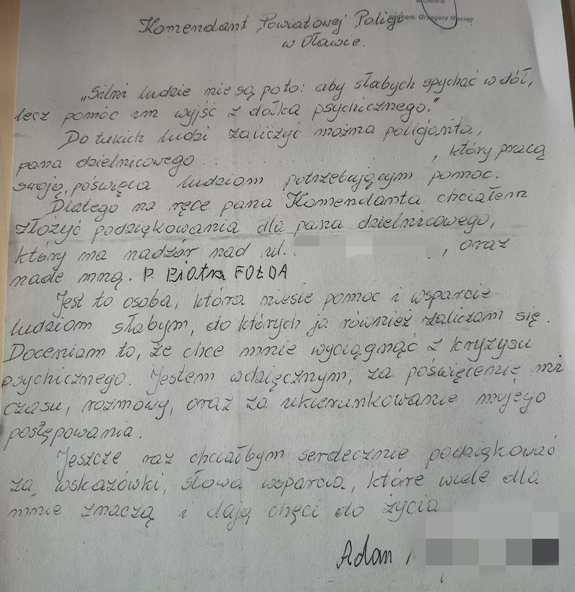 Komendant Powiatowej Policji
w Oławie.
"Silni ludzie nie są po to: aby słabych spychać w dół,
lecz pomóc im wyjść z dołka psychicznego."
Do takich ludzi zaliczyć można policjanta,
pana dzielnicowego , który pracą
swoją, poświęca ludziom potrzebującym pomoc.
Dlatego na ręce pana Komendanta chciałem
złożyć podziękowania dla pana dzielnicowego,
który ma nadzór nad ul. , oraz
nade mną. P. PIOTRA FOŁDA
Jest to osoba, która niesie pomoc i wsparcie
ludziom słabym, do których ja również zaliczam się.
Doceniam to, że chce mnie wyciągnąć z kryzysu
psychicznego. Jestem wdzięcznym, za poświęcenie mi
czasu, rozmowy, oraz za ukierunkowanie mojego
postępowania.
Jeszcze raz chciałbym serdecznie podziękować
za, wskazówki, słowa wsparcia, które wiele dla
mnie znaczą i dają chęci do życia
Adam